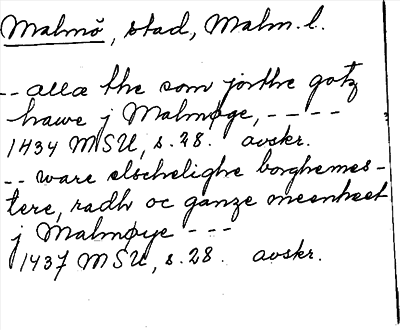 Malmö, stad, Malm. l.
-- alla the som jorthe gotz
hawe j Malmøge, - - - -
1434 MSU, s. 28. avskr.
-- ware elschelighe borghemes-
tere, radh oc ganze meenheet
j Malmøye - - -
1437 MSU, s. 28. avskr.